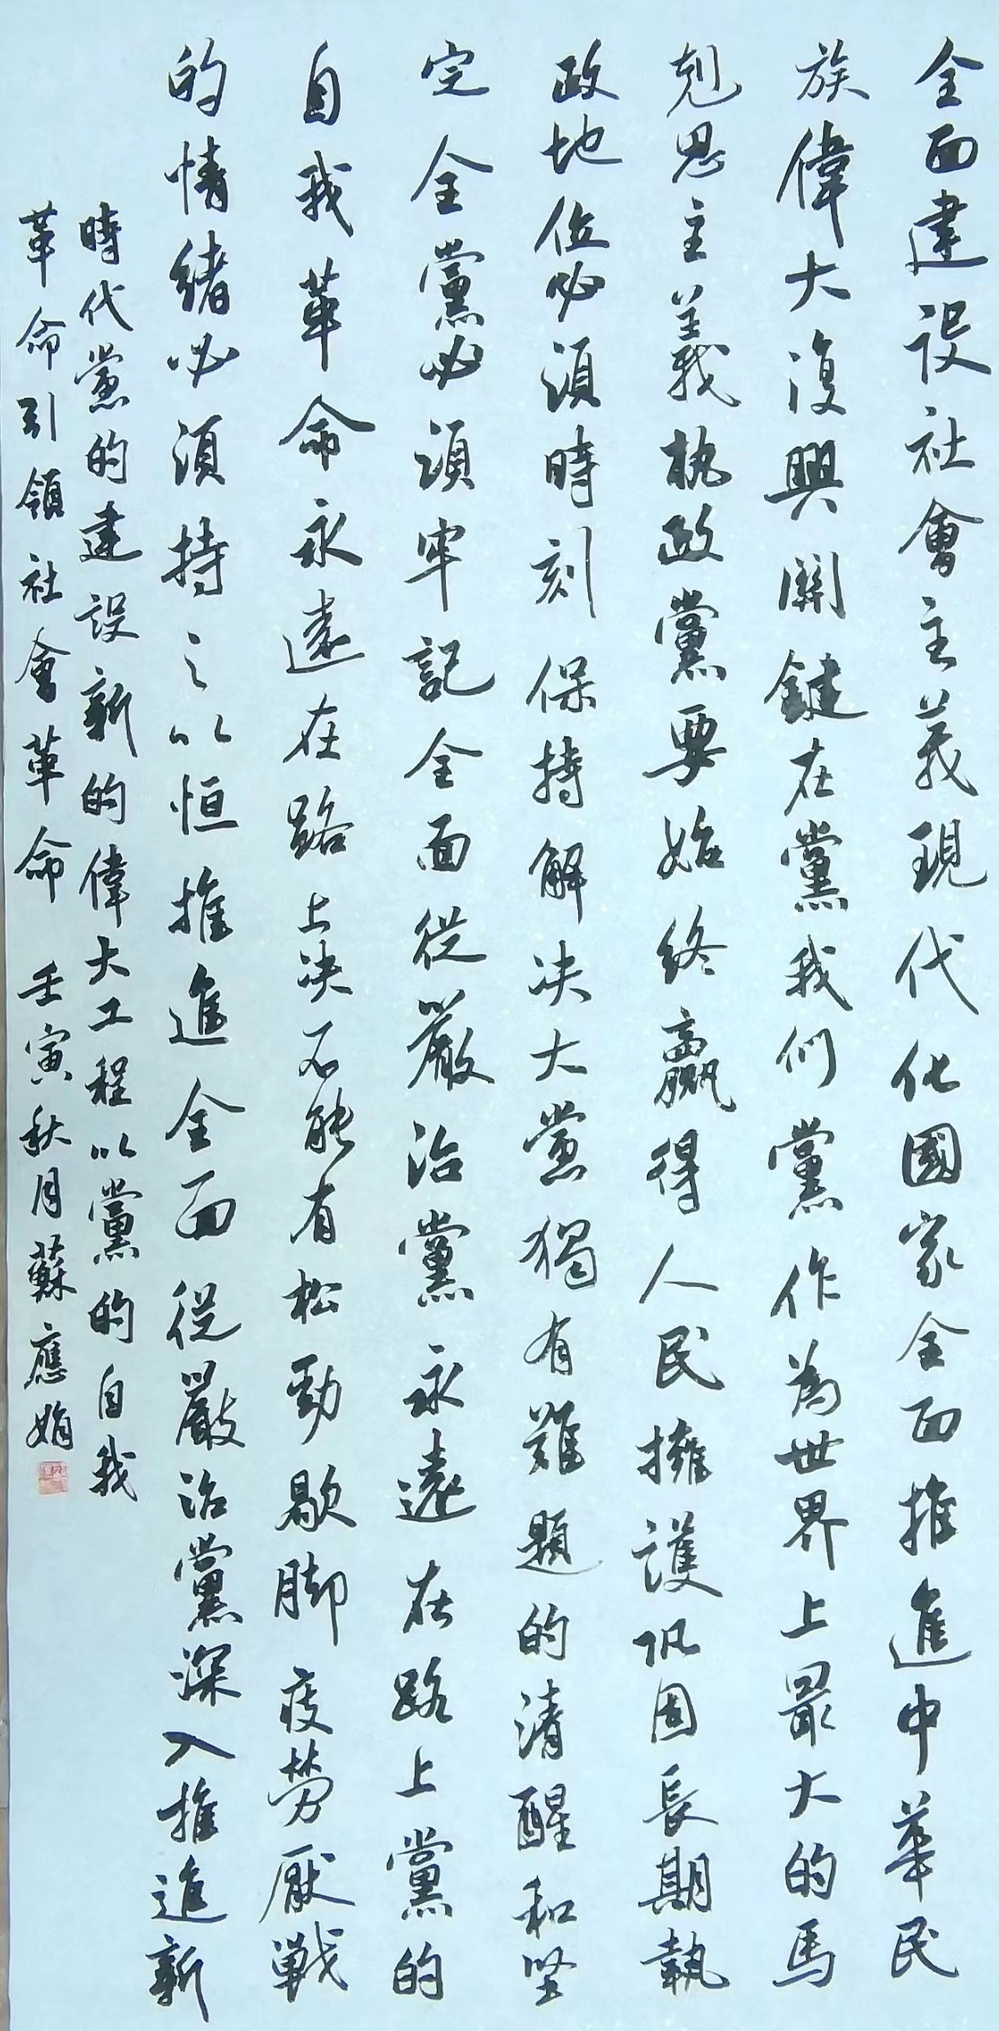 全面建设社會主義現代化國家全面推進中華民
族偉大復興關鍵在黨我们黨作為世界上最大的馬
剋思主義執政黨要始終贏得人民擁護巩固長期執
政地位必須時刻保持解决大党獨有難題的清醒和坚
定全黨必須牢記全面從嚴治黨永遠在路上黨的
自我革命永遠在路上决不能有松勁歇脚疲勞厭戰
的情绪必須持之以恒推進全面從嚴治黨深入推進新
時代党的建設新的偉大工程以黨的自我
革命引領社會革命 壬寅秋月蘇應娟